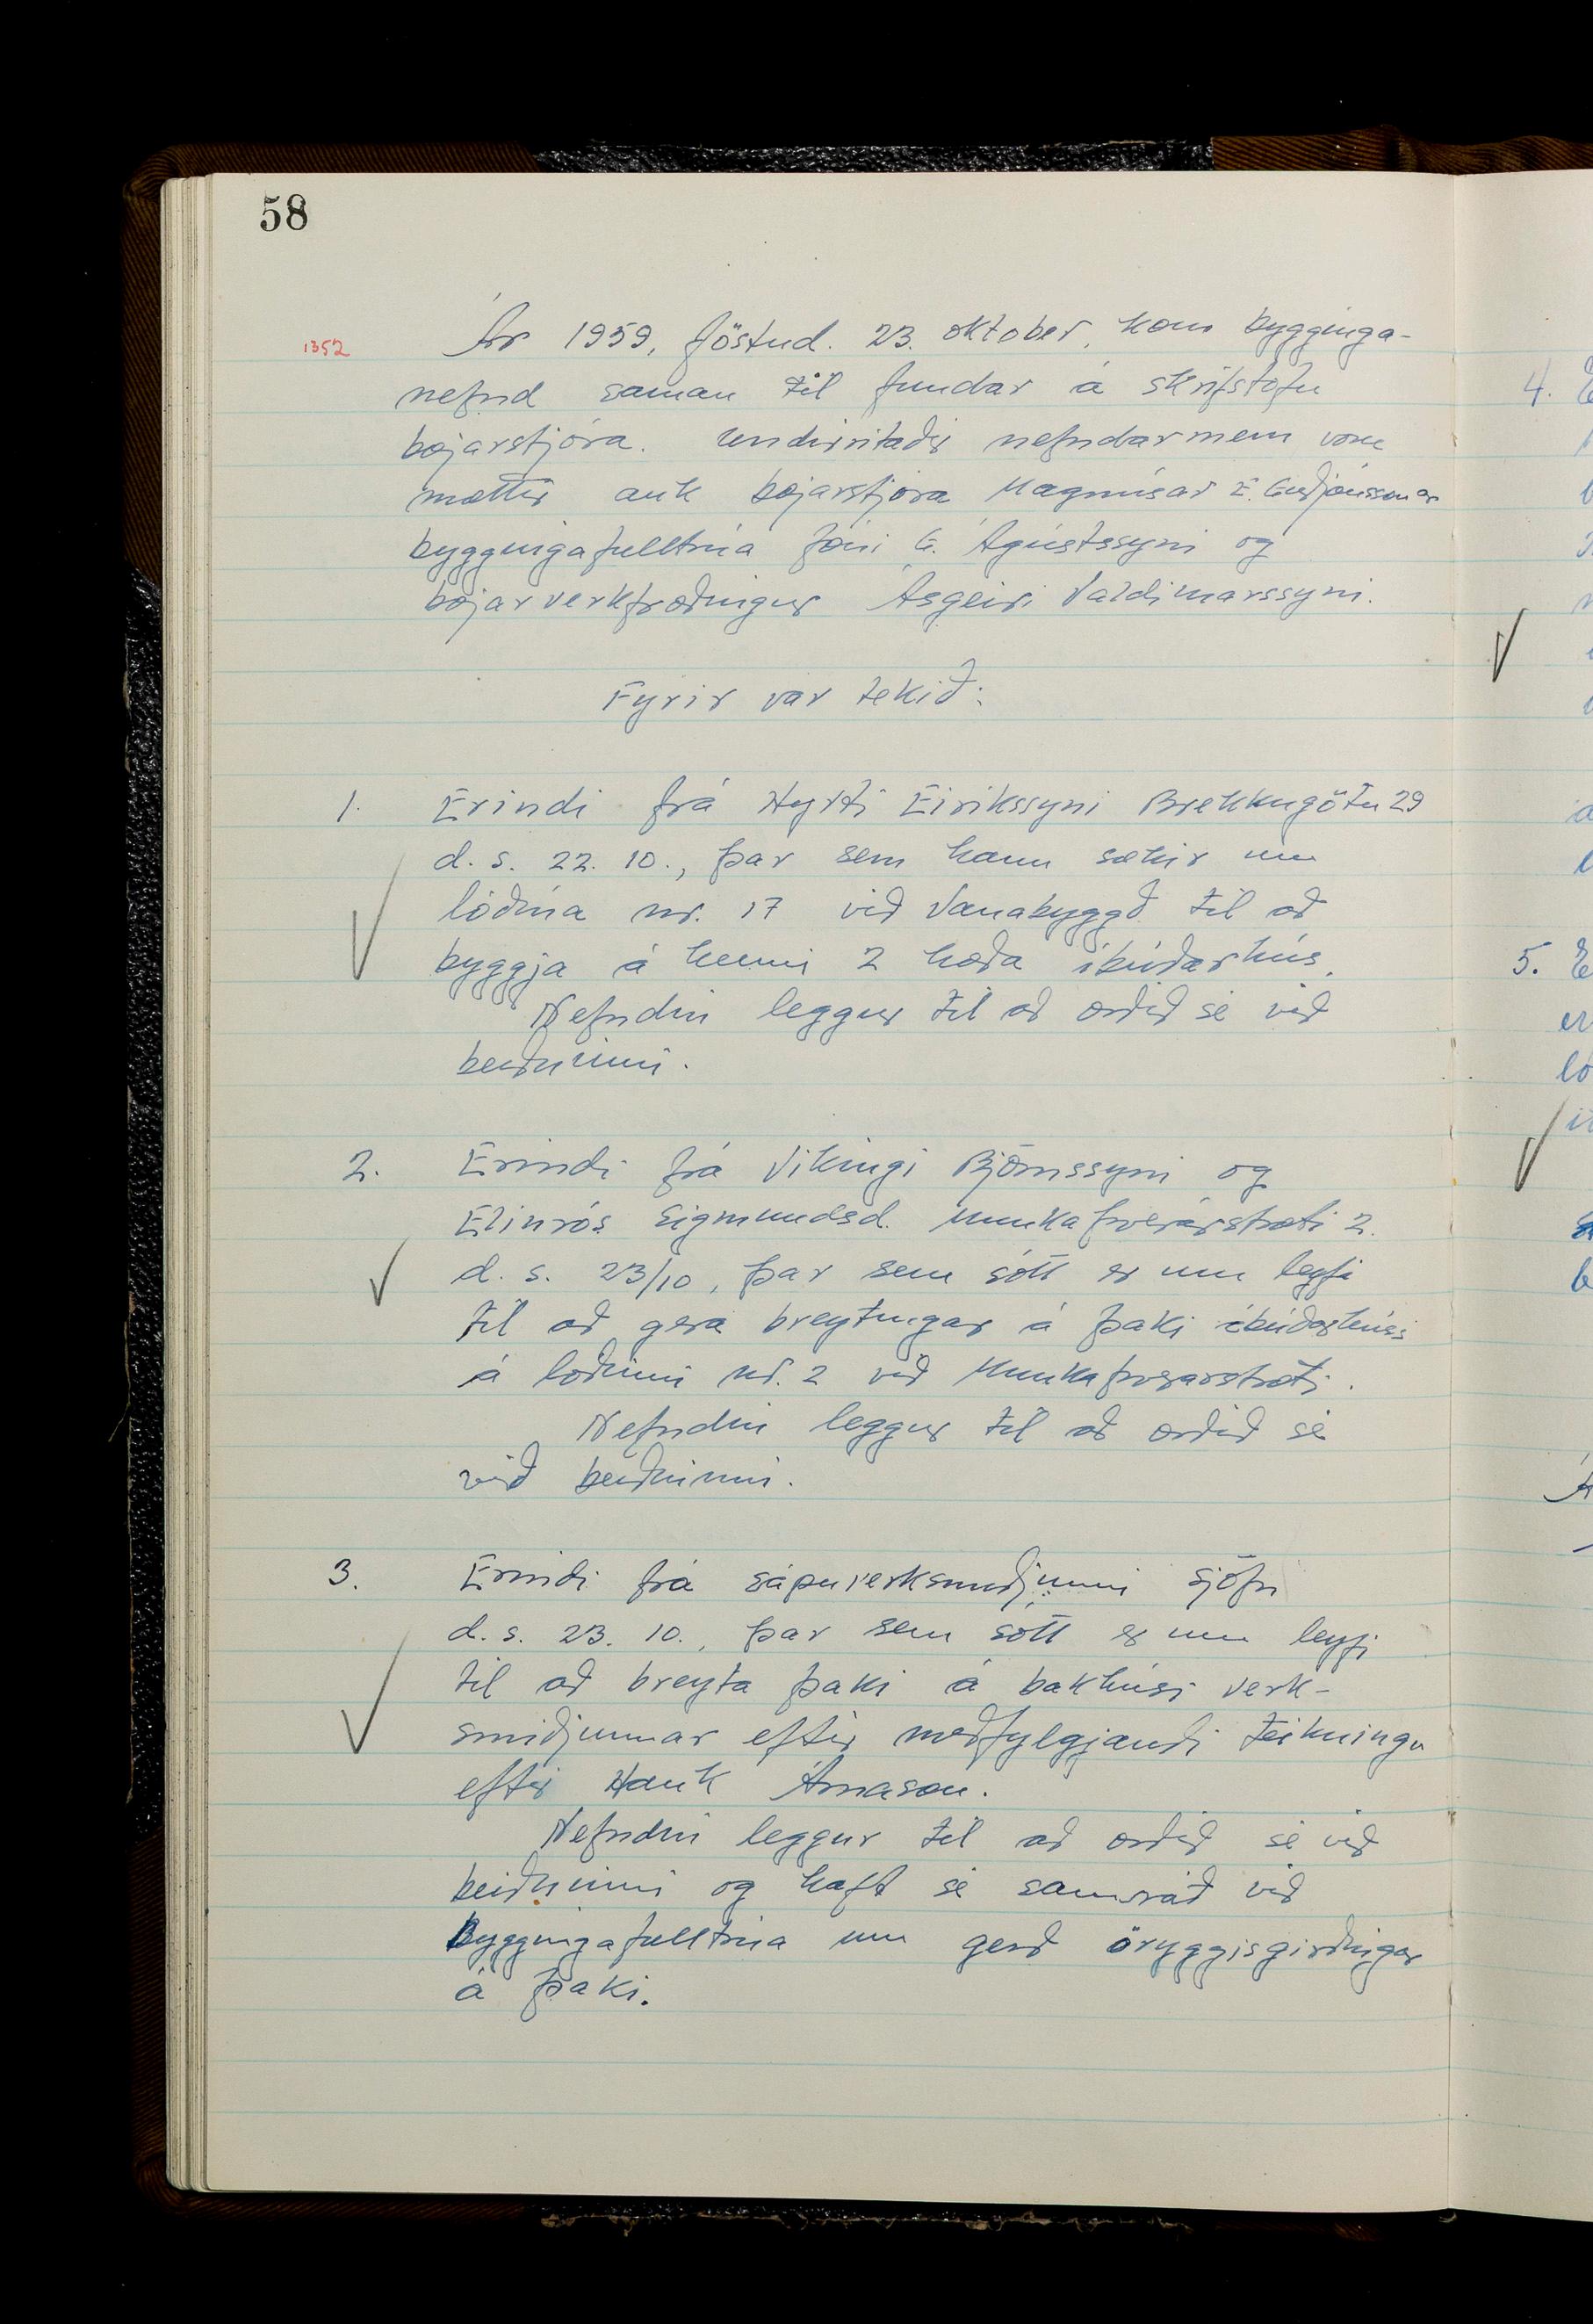 58
1352
Ár 1959, föstud. 23. oktober, kom bygginga-
nefnd saman til fundar á skrifstofu
bæjarstjóra. Undirritaðir nefndarmenn voru
mættir auk bæjarstjóra Magnúsar E. Guðjónssonar
byggingafulltrúa Jóni G. Ágústssyni og
bæjarverkfræðingur Ásgeiri Valdimarssyni.
Fyrir var tekið:
1. Erindi frá Hyrti Eirikssyni Brekkugötu 29
d. s. 22. 10., þar sem hann sækir um
lóðina nr. 17 við Vanabyggð til að
byggja á henni 2 hæða íbúðarhús.
Nefndin leggur til að orðið sé við
beiðninni.
2. Erindi frá Vikingi Björnssyni og
Elinrós Sigmundsd. Munkaþverárstræti 2.
d. s. 23/10, þar sem sótt er um leyfi
til að gera breytingar á þaki íbúðarhúss
á lóðinni nr. 2 við Munkaþverarstræti.
Nefndin leggur til að orðið sé
við beiðninni.
3. Erindi frá sápuverksmiðjunni Sjöfn
d. s. 23. 10., þar sem sótt er um leyfi
til að breyta þaki á bakhúsi verk-
smiðjunnar eftir meðfylgjandi teikningu
eftir Hauk Árnason.
Nefndin leggur til að orðið sé við
beiðninni og haft sé samráð við
Byggingafulltrúa um gerð öryggisgirðingar
á þaki.
4.
5.